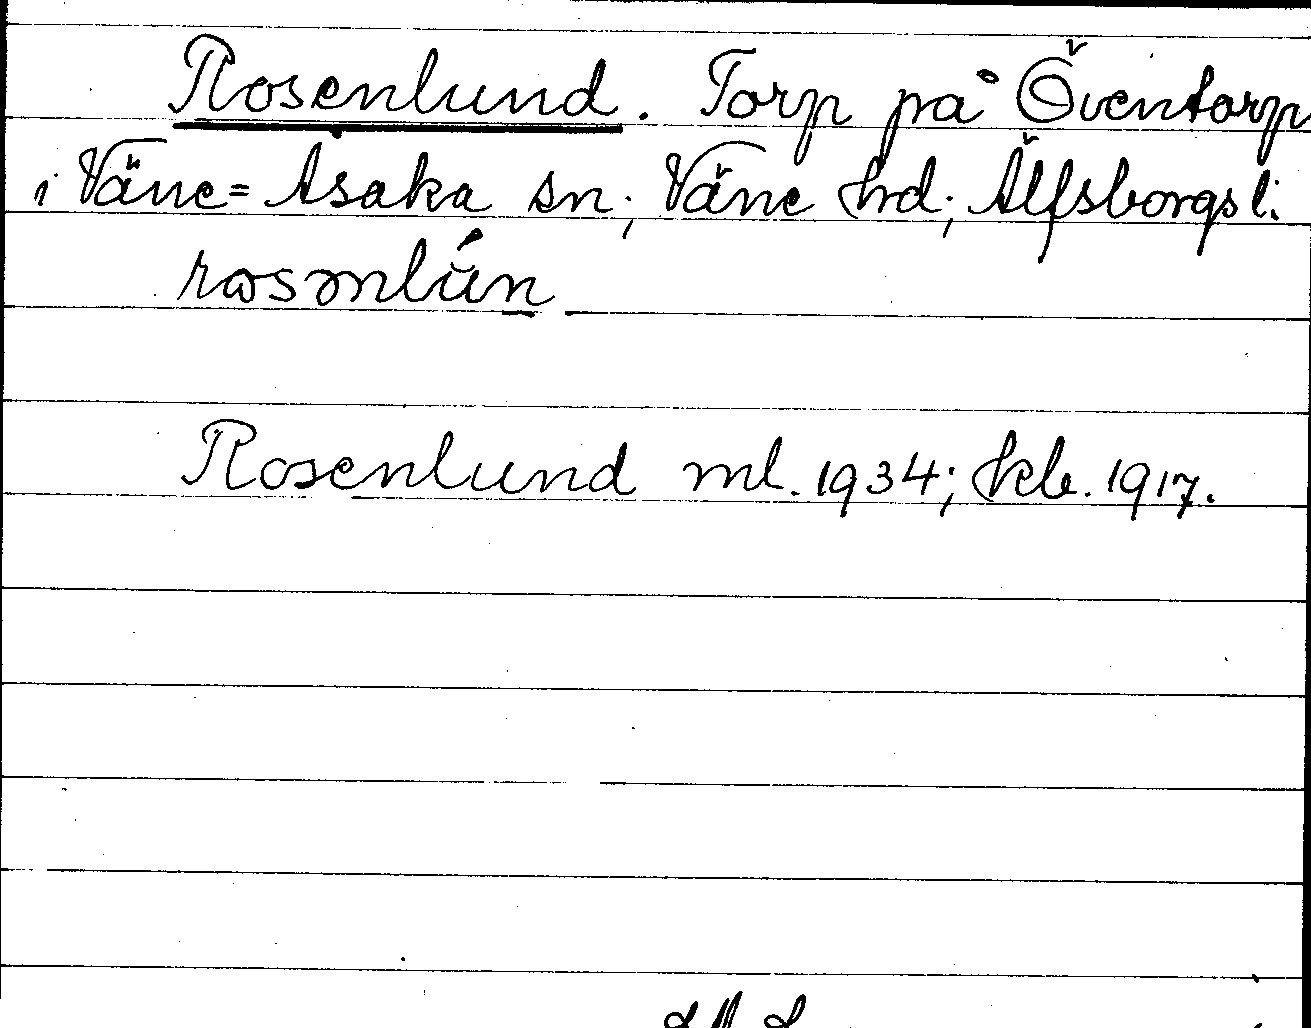 Rosenlund. Torp på Öventorp
i Väne=Åsaka sn; Väne hd; Älfsborgs l.
rosənlún
Rosenlund ml. 1934; kb. 1917.